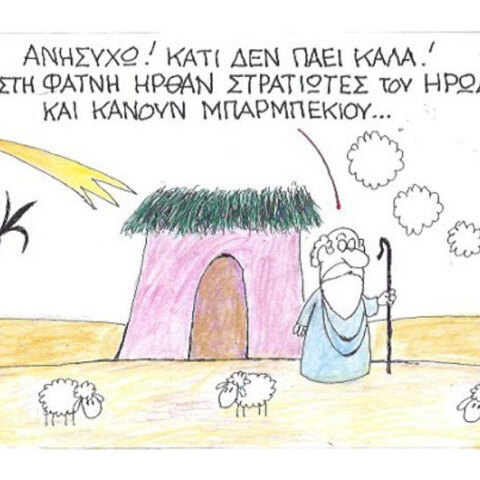 ΑΝΗΣΥΧΩ! ΚΑΤΙ ΔΕΝ ΠΑΕΙ ΚΑΛΑ!
ΣΤΗ ΦΑΤΝΗ ΗΡΘΑΝ ΣΤΡΑΤΙΩΤΕΣ του
ΚΑΙ ΚΑΝΟΥΝ ΜΠΑΡΜΠΕΚΙΟΥ...